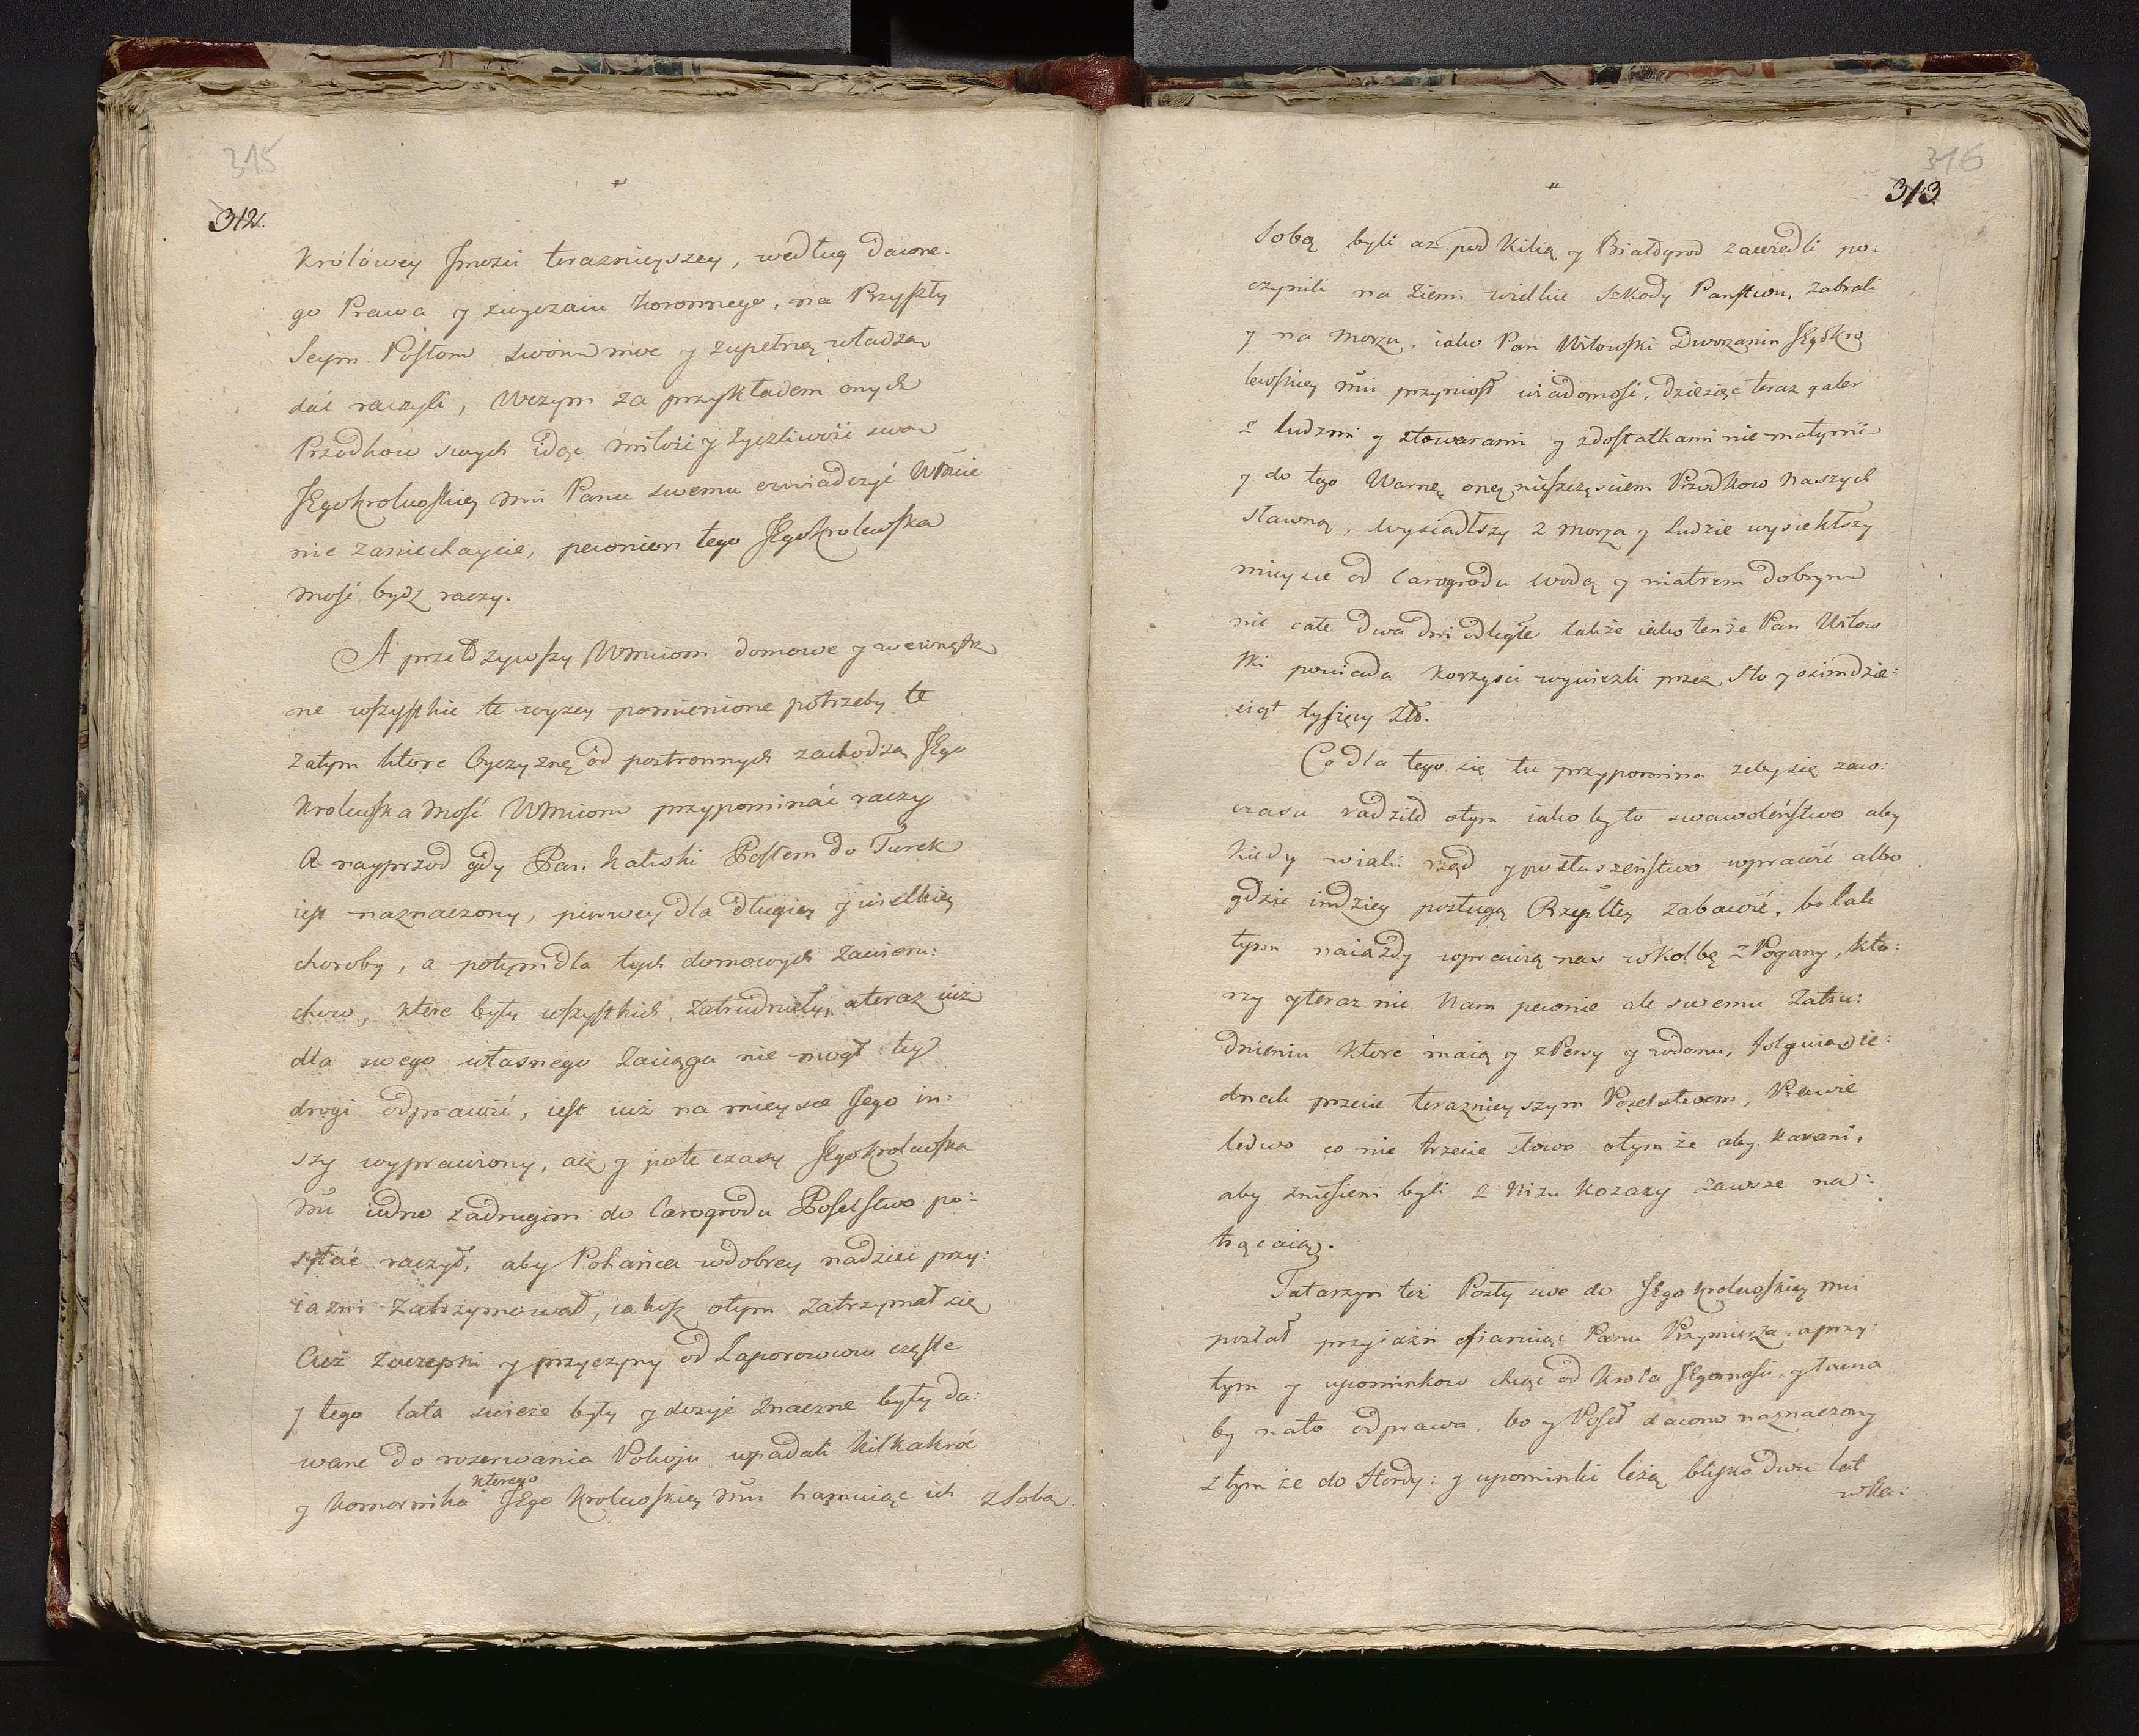 315
312.
Królówey Jmości terazнieyszey, według dawne:
go Prawa y zwyczaiu koronnego, na Przyszły
Seym Posłom swoim moc y zupełną władzą
dać raczyli, Wczym za przykładem onych
Przodkow swych idąc miłość y życzliwość swą
JEgokrolewskiey mći Panu swemu oświadczyć Wmcie
nie zaniechaycie, pewnien tego JEgokrolewska
mość bydź raczy.
A przełożywszy WMciom domowe y wewnętrz
ne wszystkie te wyzey pomienione potrzeby te
zatym ktore Oyczyznę od postronnych zachodzą JEgo
Krolewska Mość WMciom przypominać raczy
A nayprzod gdy Pan. Kaliski Posłem do Turek
iest naznaczony, pierwey dla długiey y wielkiey
choroby, a potym dla tych domowych zawieru:
chow, ktore były wszystkich zatrudniły, ateraz iuż
dla swego własnego Zaciągu nie mogł tey
drogi odprawić, iest iuż na mieysce Jego in:
szy wyprawiony, acz y pote czasy JEgokrolewska
mć iedno zadrugim do Carogrodu Poselstwo po:
syłać raczył, aby Pohańca wdobrey nadziei przy:
iazni zatrzymował, iakosz otym zatrzymał się
Acz zaczepki y przyczyny od Zaporowcow częste
y tego lata swieże były y dosyć znaczne były da:
wane do rozerwania Pokoju wpadali kilkakroć
y komornika ktorego JEgo Krolewskiey Mći hamuiąc ich zSobą.
316
313
Sobą byli az pod Kilią y Białdgrod zawiedli po:
czynili na Ziemi wielkie szkody Panstwu, zabrali
y na morzu, iako Pan Witowski Dworzanin JEgoKro
lewskiey mći przyniosł wiadomość, dziesięć teraz galer
z ludzmi y ztowarami y zdostatkami nie małymi
y do tego Warnę onę nieszczęsciem Przodkow Naszych
sławną, wysiadłszy z morza y ludzie wysiekłszy
mieysce od Carogrodu wodą y wiatrem dobrym
nie całe dwa dni odległe także iako tenże Pan Witow
ski powiada korzysci wywiezli przez sto y osimdzie:
siąt tysięcy Zł.
Co dla tego się tu przypomina zeby się zaw:
czasu radziło otym iako by to swawoleństwo aby
kiedy wiaki rząd y posłuszeństwo wprawić albo
gdzie indziey posługą Rzeplltey zabawić, bo tak
tymi naiazdy wprawią nas wKolbę z Pogany, kto:
rzy yteraz nie Nam pewnie ale swemu Zatru:
dnieniu ktore maią y zPersy y wdomu, folguią ie:
dnak przecie terazнieyszym Poselstwem, Prawie
ledwo co nie trzecie słowo otym że aby karani,
aby zniesieni byli z Nizu Kozacy zawsze na:
trącaią.
Tatarzyn też Posły swe do JEgo krolewskiey mći
posłał przyiaźń ofiaruiąc Panu Przymierza, aprzy:
tym y upominkow chcąc od Krola JEgomości, y łacna
by nato odprawa, bo y Poseł dawno naznaczony
z tym że do Hordy: y upominki leżą blisko dwu lat
wka: